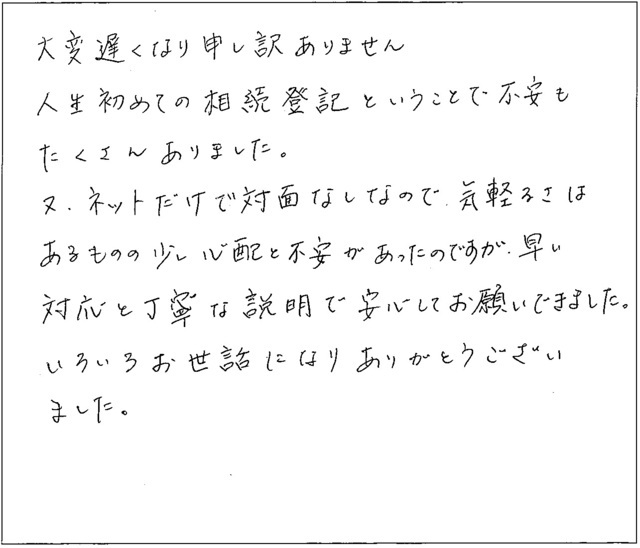 大変遅くなり申し訳ありません
人生初めての相続登記ということで不安も
たくさんありました。
又、ネットだけで対面なしなので、気軽るさは
あるものの少し心配と不安があったのですが、早い
対応と丁寧な説明で安心してお願いできました。
いろいろお世話になりありがとうござい
ました。